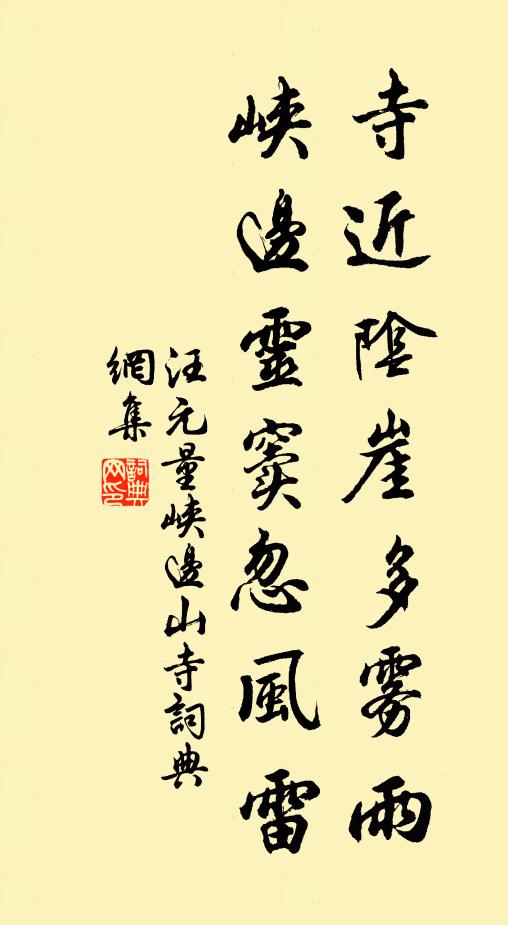 寺近陰崖多雾雨
峽邊靈窦忽風雷
汪元量峽邊山寺詞典
網集
詞典
网印